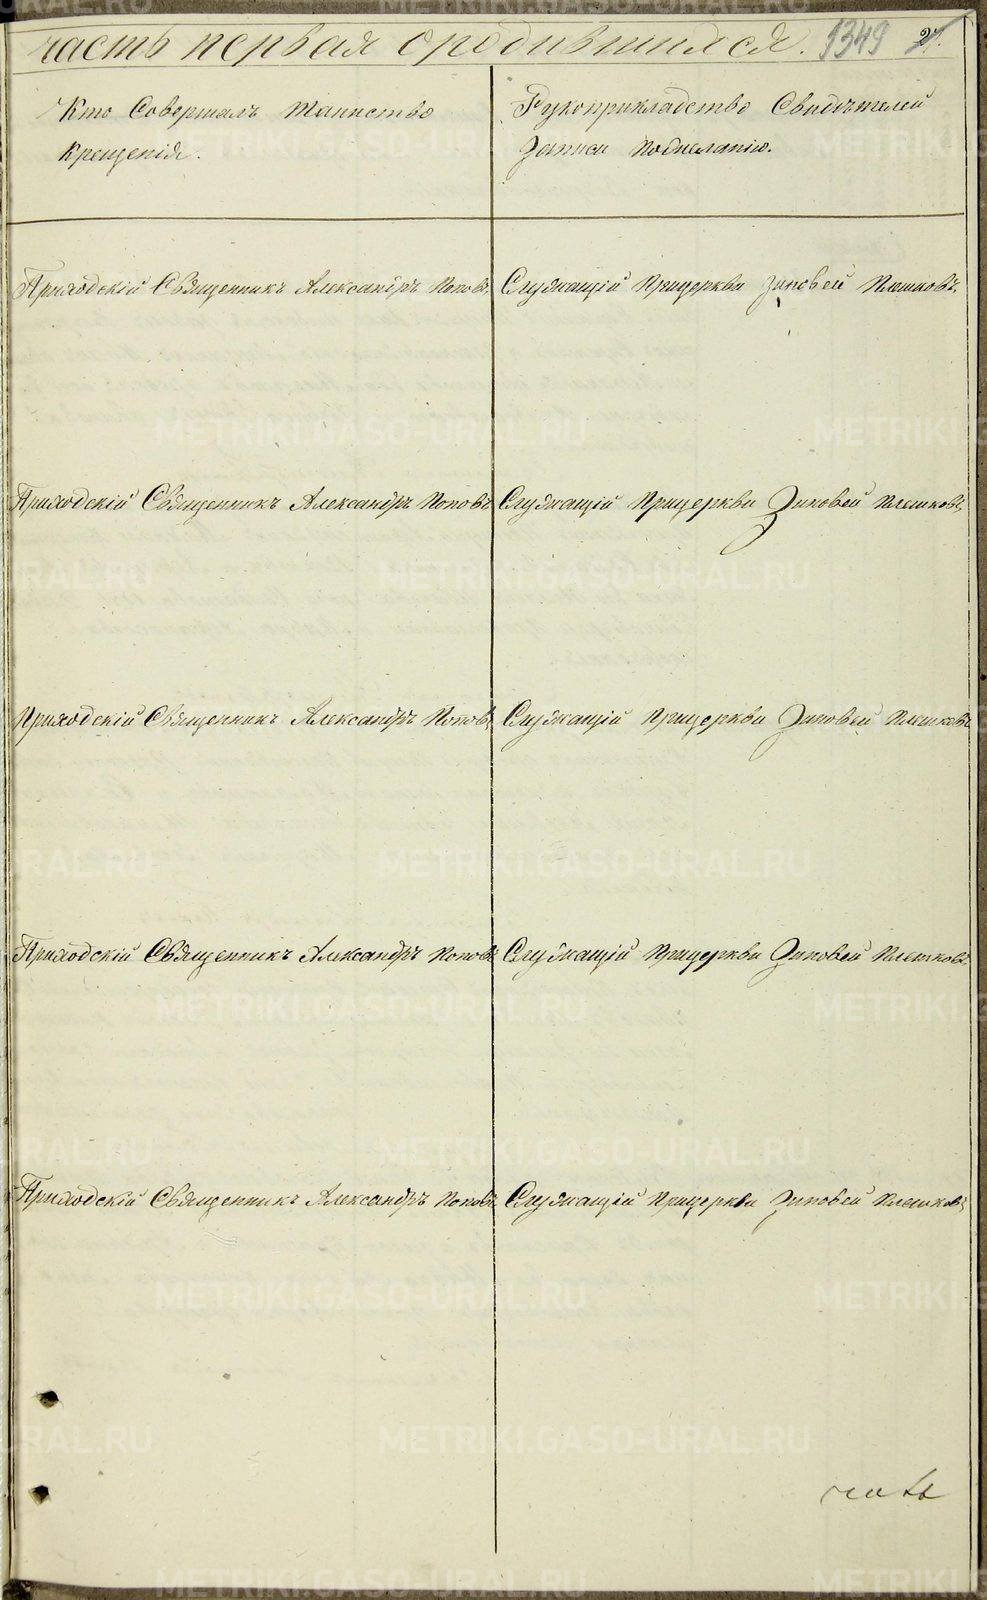 часть первая ородившимся. 1349 27.
Кто Совершалъ Таинство
Крещенія.
Рукоприкладство Свидѣтелей
Записи Пожеланію.
Приходскій Священникъ Александръ Поповъ, Служащій Прицеркви Зиновей Плешковъ,
Приходскій Священникъ Александръ Поповъ Служащій Прицеркви Зиновей Плешковъ,
Приходскій Священникъ Александръ Поповъ, Служащій Прицеркви Зиновей Плешковъ
Приходскій Священникъ Александръ Поповъ Служащій Прицеркви Зиновей Плешковъ.
Приходскій Священникъ Александръ Поповъ, Служащій Прицеркви Зиновей Плешковъ,
METRIKI.GASO-URAL.RU